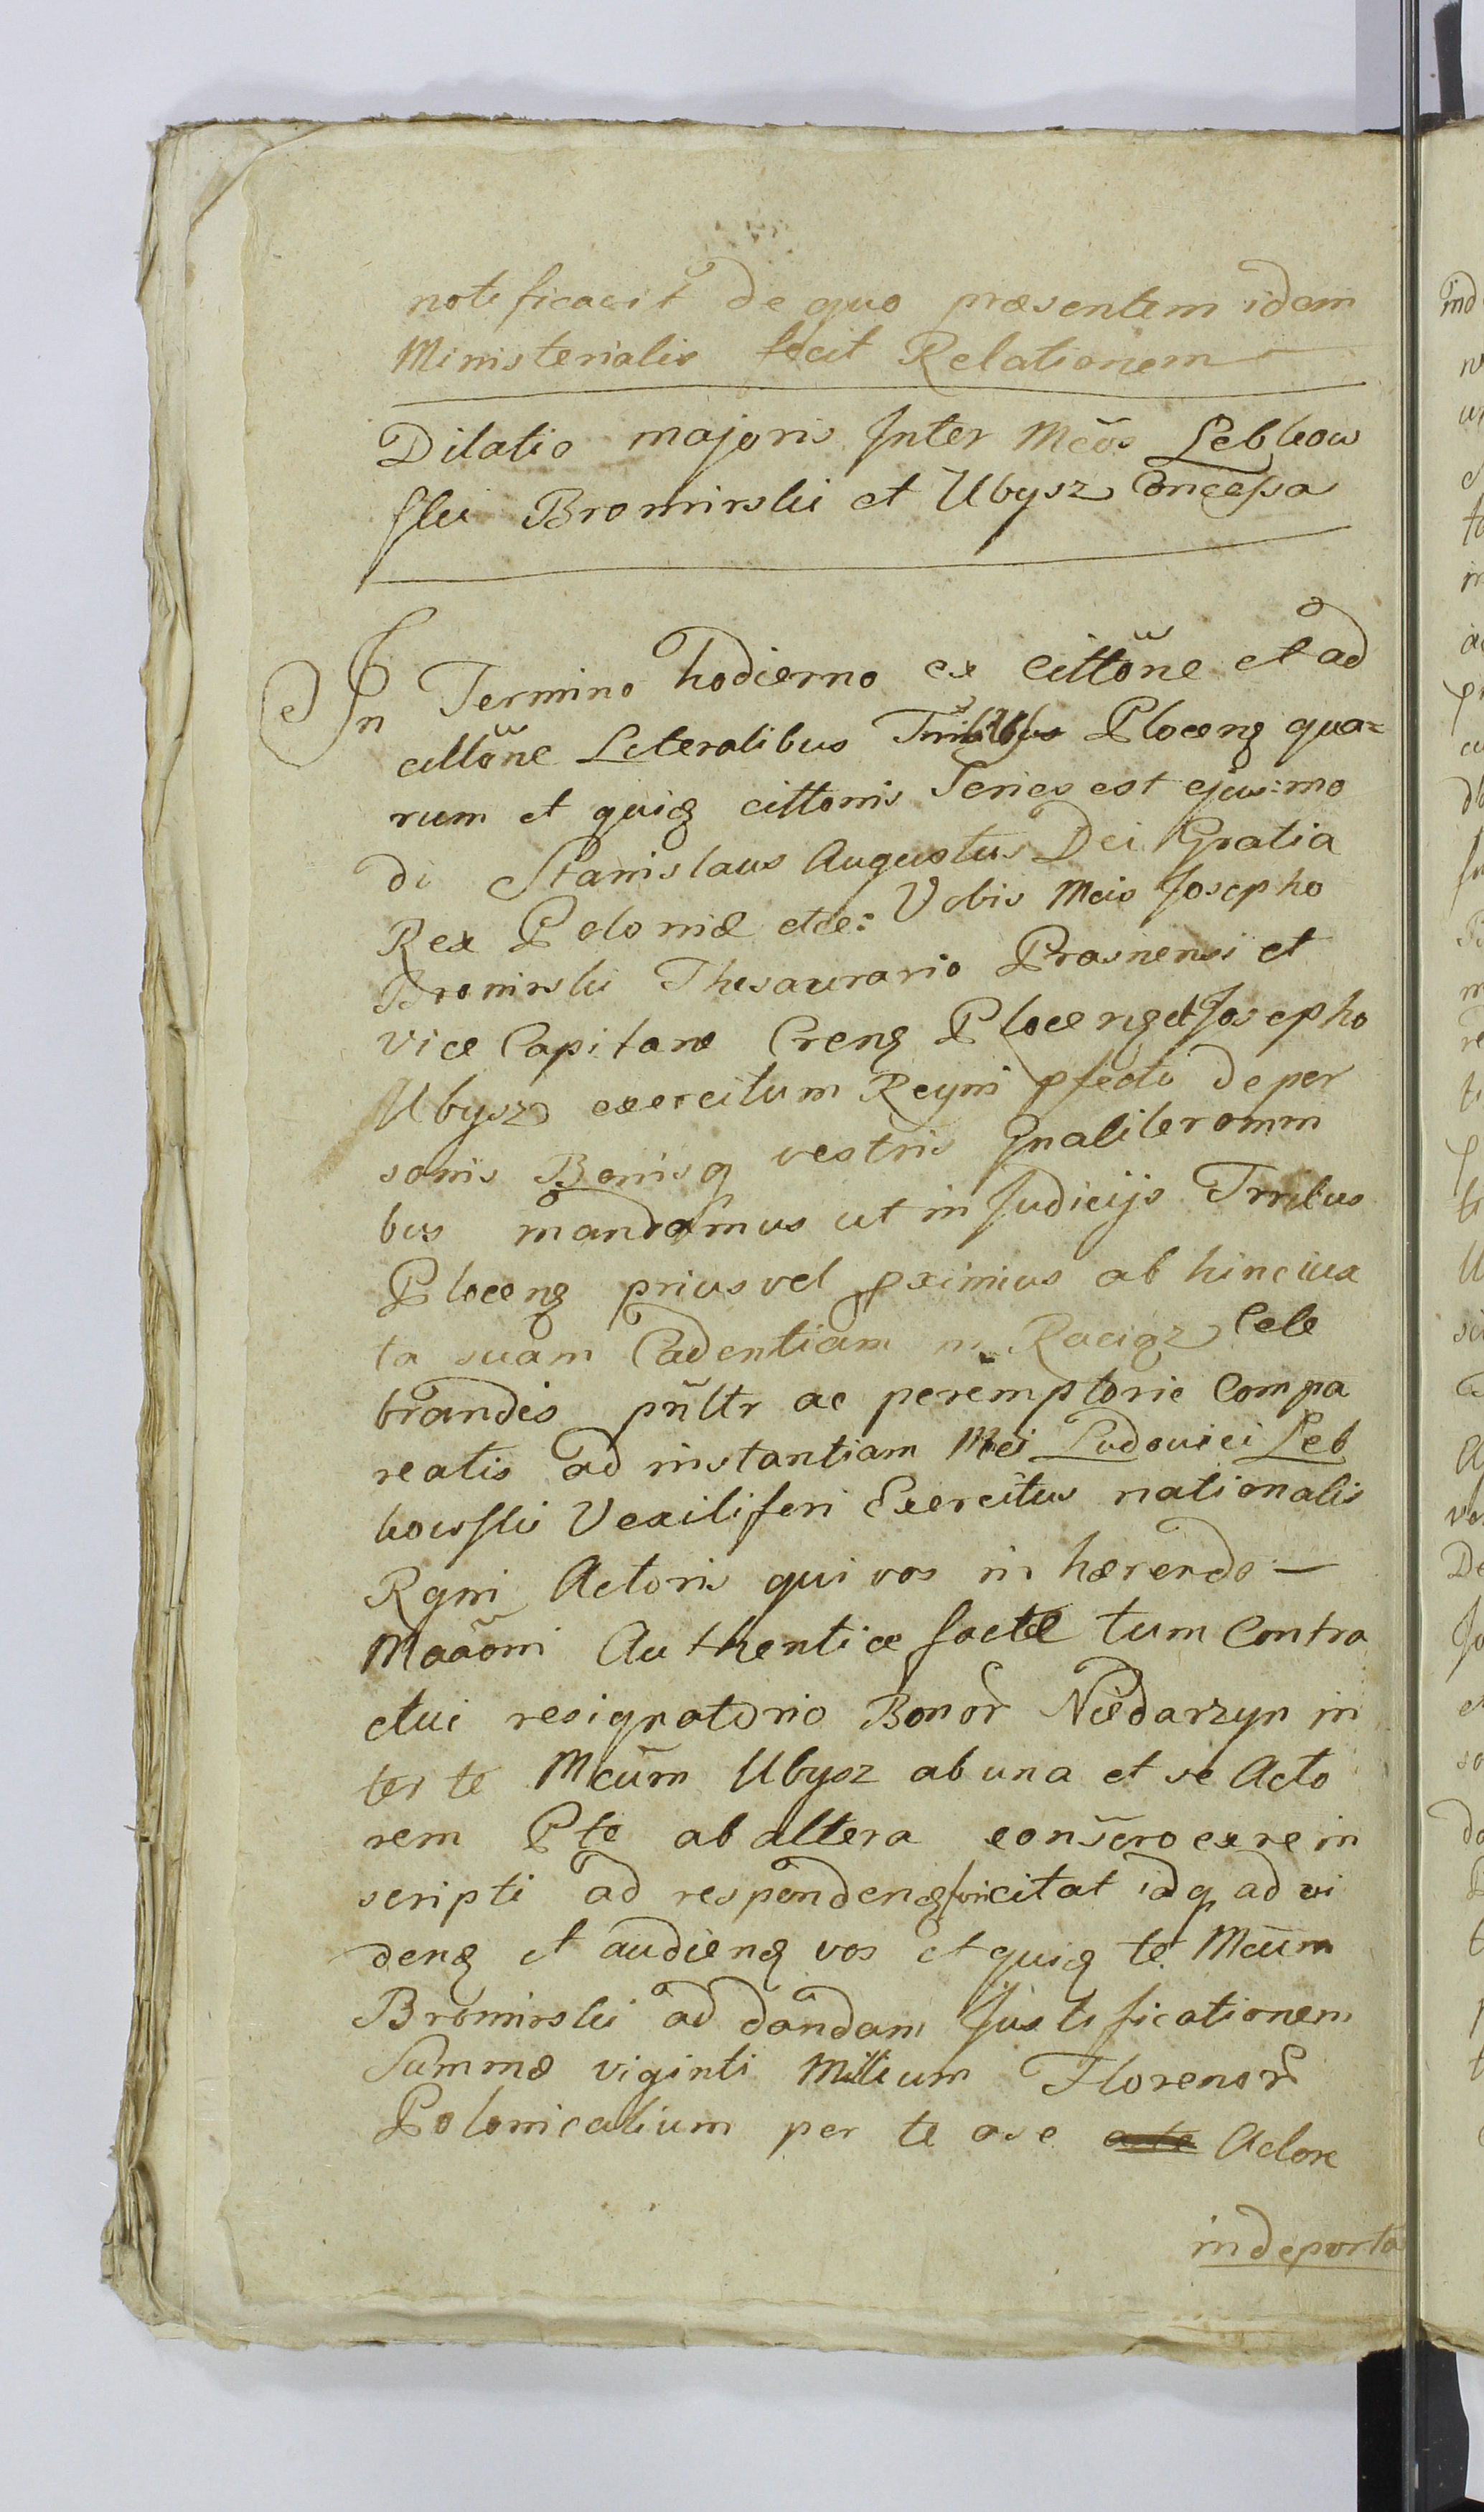 notificavit de quo præsentem idem
Ministerialis fecit Relationem
Dilatio majoris Inter Mcos Lebkow
skii Bromirskii et Ubysz Concessa
In Termino hodierno ex Cittõne et ad
cittõne Literalibus Plocenq qua=
rum et quiq cittonis Series est ejus:mo
di Stanislaus Augustus Dei Gratia
Rex Poloniæ etce: Vobis Mcis Josepho
Bromirskii Thesaurario Prasnensi et
vice Capitane Crenq Plocenq et Josepho
Ubysz exercitum Regni pfecto de per
sonis Bonisq vestris Gnaliter omni
bus mandamus ut in Judicijs Trrilus
Plocenq prius vel pximius ab hinc iux
ta suam Cadentiam in Raciąz Cele
brandis pñltr ac peremptorie Compa
reatis ad instantiam Mci Ludovici Leb
kowskii Vexiliferi Exercitus nationalis
Rgni Actoris qui vos in hærendo —
Maãoni Authentice factæ tum Contra
ctui resignatorio Bonor Niedarzyn in
ter te Mcum Ubysz ab una et se Acto
rem Pte ab altera conscro exre in
scripti ad respondenq citat idq ad vi
denq et audienq vos et quiq te Mcum
Bromirskii ad dandam Justificationem
Summæ viginti Millium Florenor
Polonicalium per te a se a te Actore
indeporta